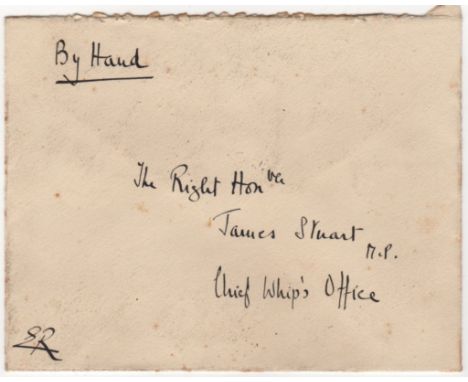 By Hand
The Right Honble
James Stuart
M.P.
Chief Whip's Office
ER